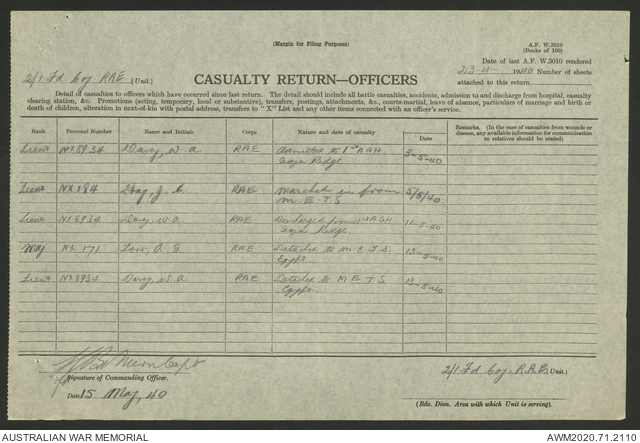 (Margin for Filing Purposes)
A.F. W.3010
(Books of 100)
2/1 Fd Coy RAE (Unit.)
CASUALTY RETURN—OFFICERS
Date of last A.F. W.3010 rendered
23-4- 1940 Number of sheets
attached to this return
Detail of casualties to officers which have occurred since last return. The detail should include all battle casualties, accidents, admission to and discharge from hospital, casualty
clearing station, &c. Promotions (acting, temporary, local or substantive), transfers, postings, attachments, &c., courts-martial, leave of absence, particulars of marriage and birth or
death of children, alteration in next-of-kin with postal address, transfers to "X" List and any other items connected with an officer's service.
Rank Personal Number Name and Initials Corps Nature and date of casualty Date Remarks. (In the case of casualties from wounds or disease, any available information for communication to relatives should be stated)
Lieut NX8934 Davey, W.A. RAE Admitted to 1st AGH
Gaza Ridge 3-5-40
Lieut NX184 J.C. RAE Marched in from
M.E.T.S 5/5/40
Lieut NX8934 Davey W.A. RAE Discharged from 1st AGH
Gaza Ridge 11-5-40
NX171 A.G. RAE Detached to M.E.T.S.
Egypt 13-5-40
Lieut NX8934 Davey, W.A. RAE Detached to M.E.T.S
Egypt 13-5-40
Capt
Signature of Commanding Officer.
2/1 Fd Coy. R.A.E. (Unit.)
Date 15 May, 40
(Bde. Divn. Area with which Unit is serving).
AUSTRALIAN WAR MEMORIAL
AWM2020.71.2110